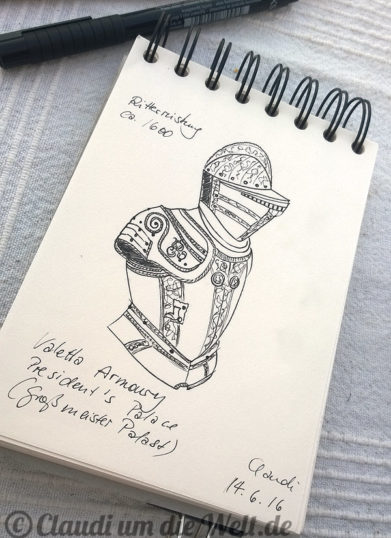 Ritterrüstung
ca. 1600
Valetta Armoury
President's Palace
(Großmeister Palast)
Claudi
14.6.16
© Claudi um die Welt.de